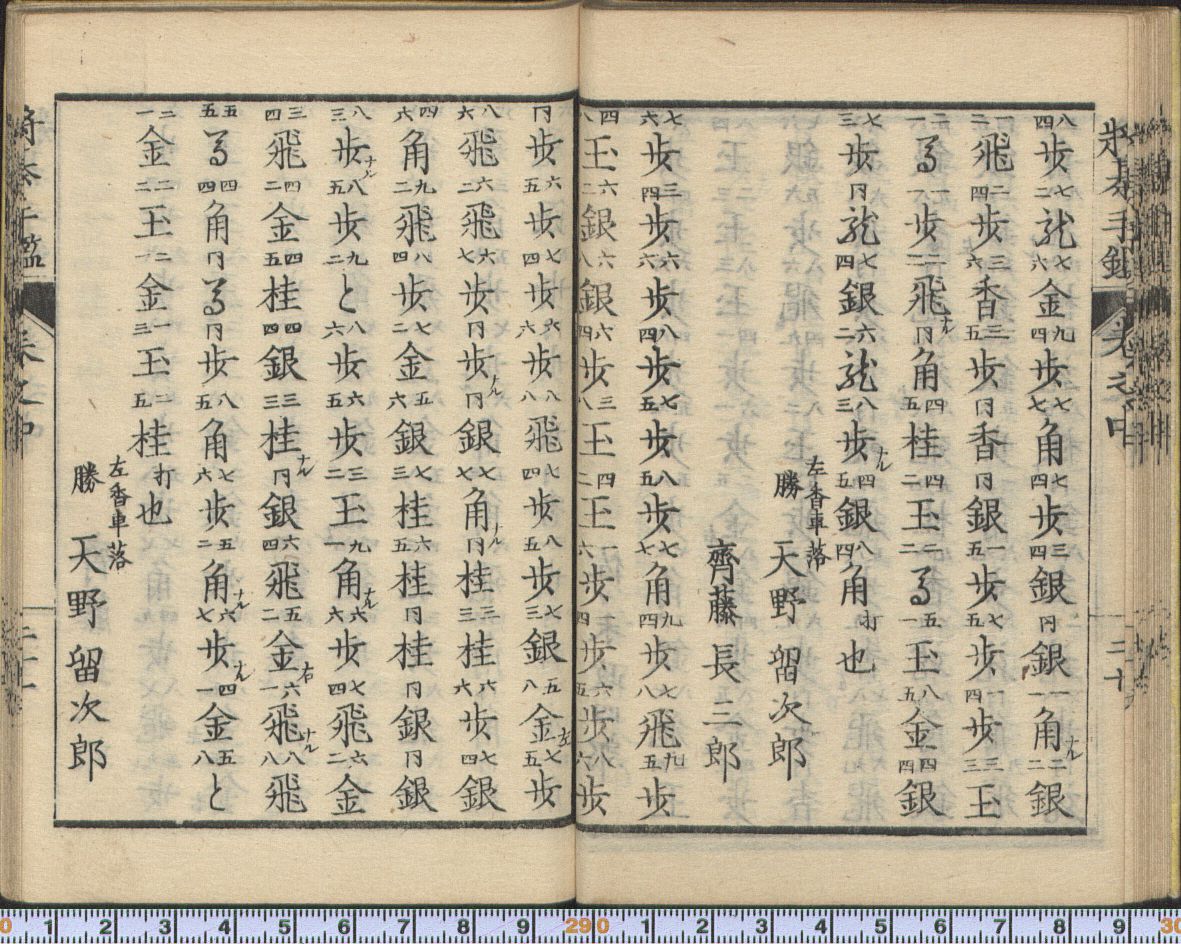 棊手鑑 卷之中 三十
八四歩七二龍七六金九四歩七七角七四歩三四銀同銀一一角ナル二二銀
一二飛二四歩三六香三五歩同香同銀一五歩七五歩四歩三三玉
二一馬一一歩二二飛ナル同角四五桂四二玉二二馬五一玉八五金四四銀
七三歩同龍七四銀六二龍八三歩ナル四五銀八四角打也
左香車落
勝 天野留次郎
齊藤長三郎
七六歩三四歩六六歩八四歩七五歩八五歩七七角九四歩七八飛九五歩
四八玉六二銀六八銀六四歩三八玉四二玉六歩四歩六五歩八六歩
同歩六五歩七四歩六六歩八飛七四歩八五歩七三銀五八金左七五歩
八六飛六二飛六七歩同歩ナル同銀七七角ナル同桂三三桂六六歩七四銀
四六角九二飛八四歩七二金五六銀七三桂六五桂同桂同銀同銀
八三歩ナル八五歩九二と八六歩六五歩三二玉九一角ナル六六歩七四飛六二金
三四飛四二金四五桂四四銀三三桂ナル同銀六四飛五二金右六一飛ナル八八飛
五五馬四四角同馬同歩八五角七六歩五二角ナル六七歩ナル四一金五八と
二一金二二玉二一金一三玉二五桂打也
左香車落
勝 天野留次郎